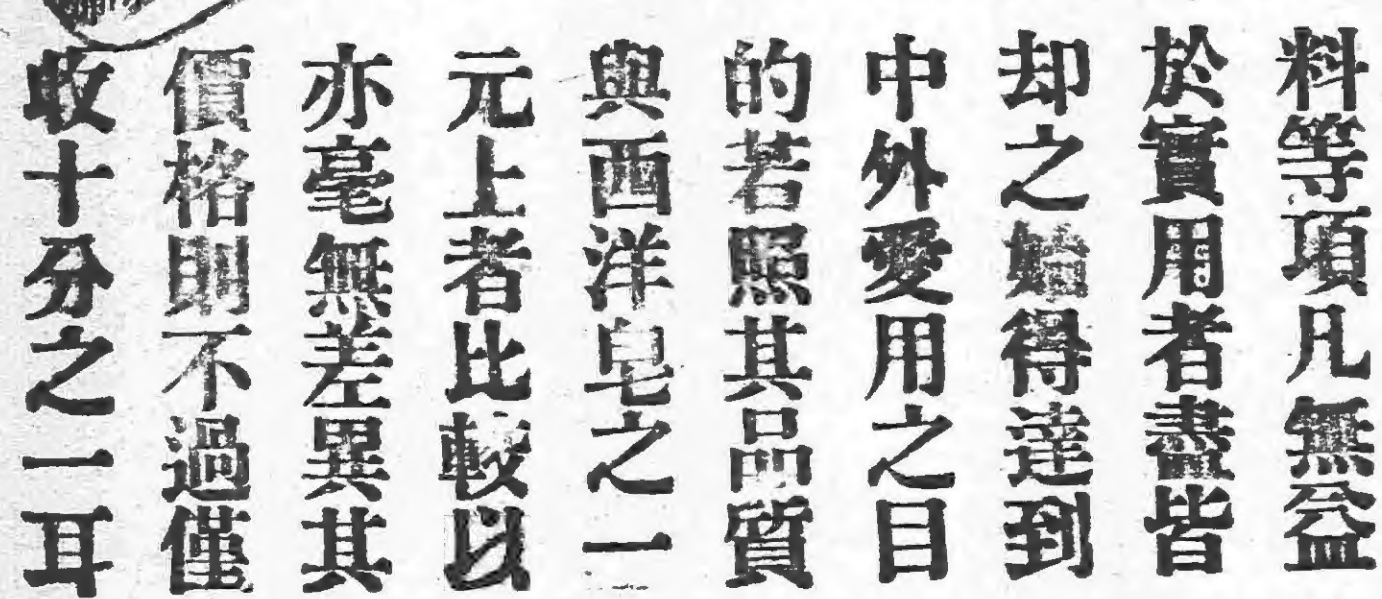 料等項凡無益
於實用者盡皆
却之始得達到
中外愛用之目
的若照其品質
與西洋皂之一
元上者比較以
亦毫無差異其
價格則不過僅
收十分之一耳